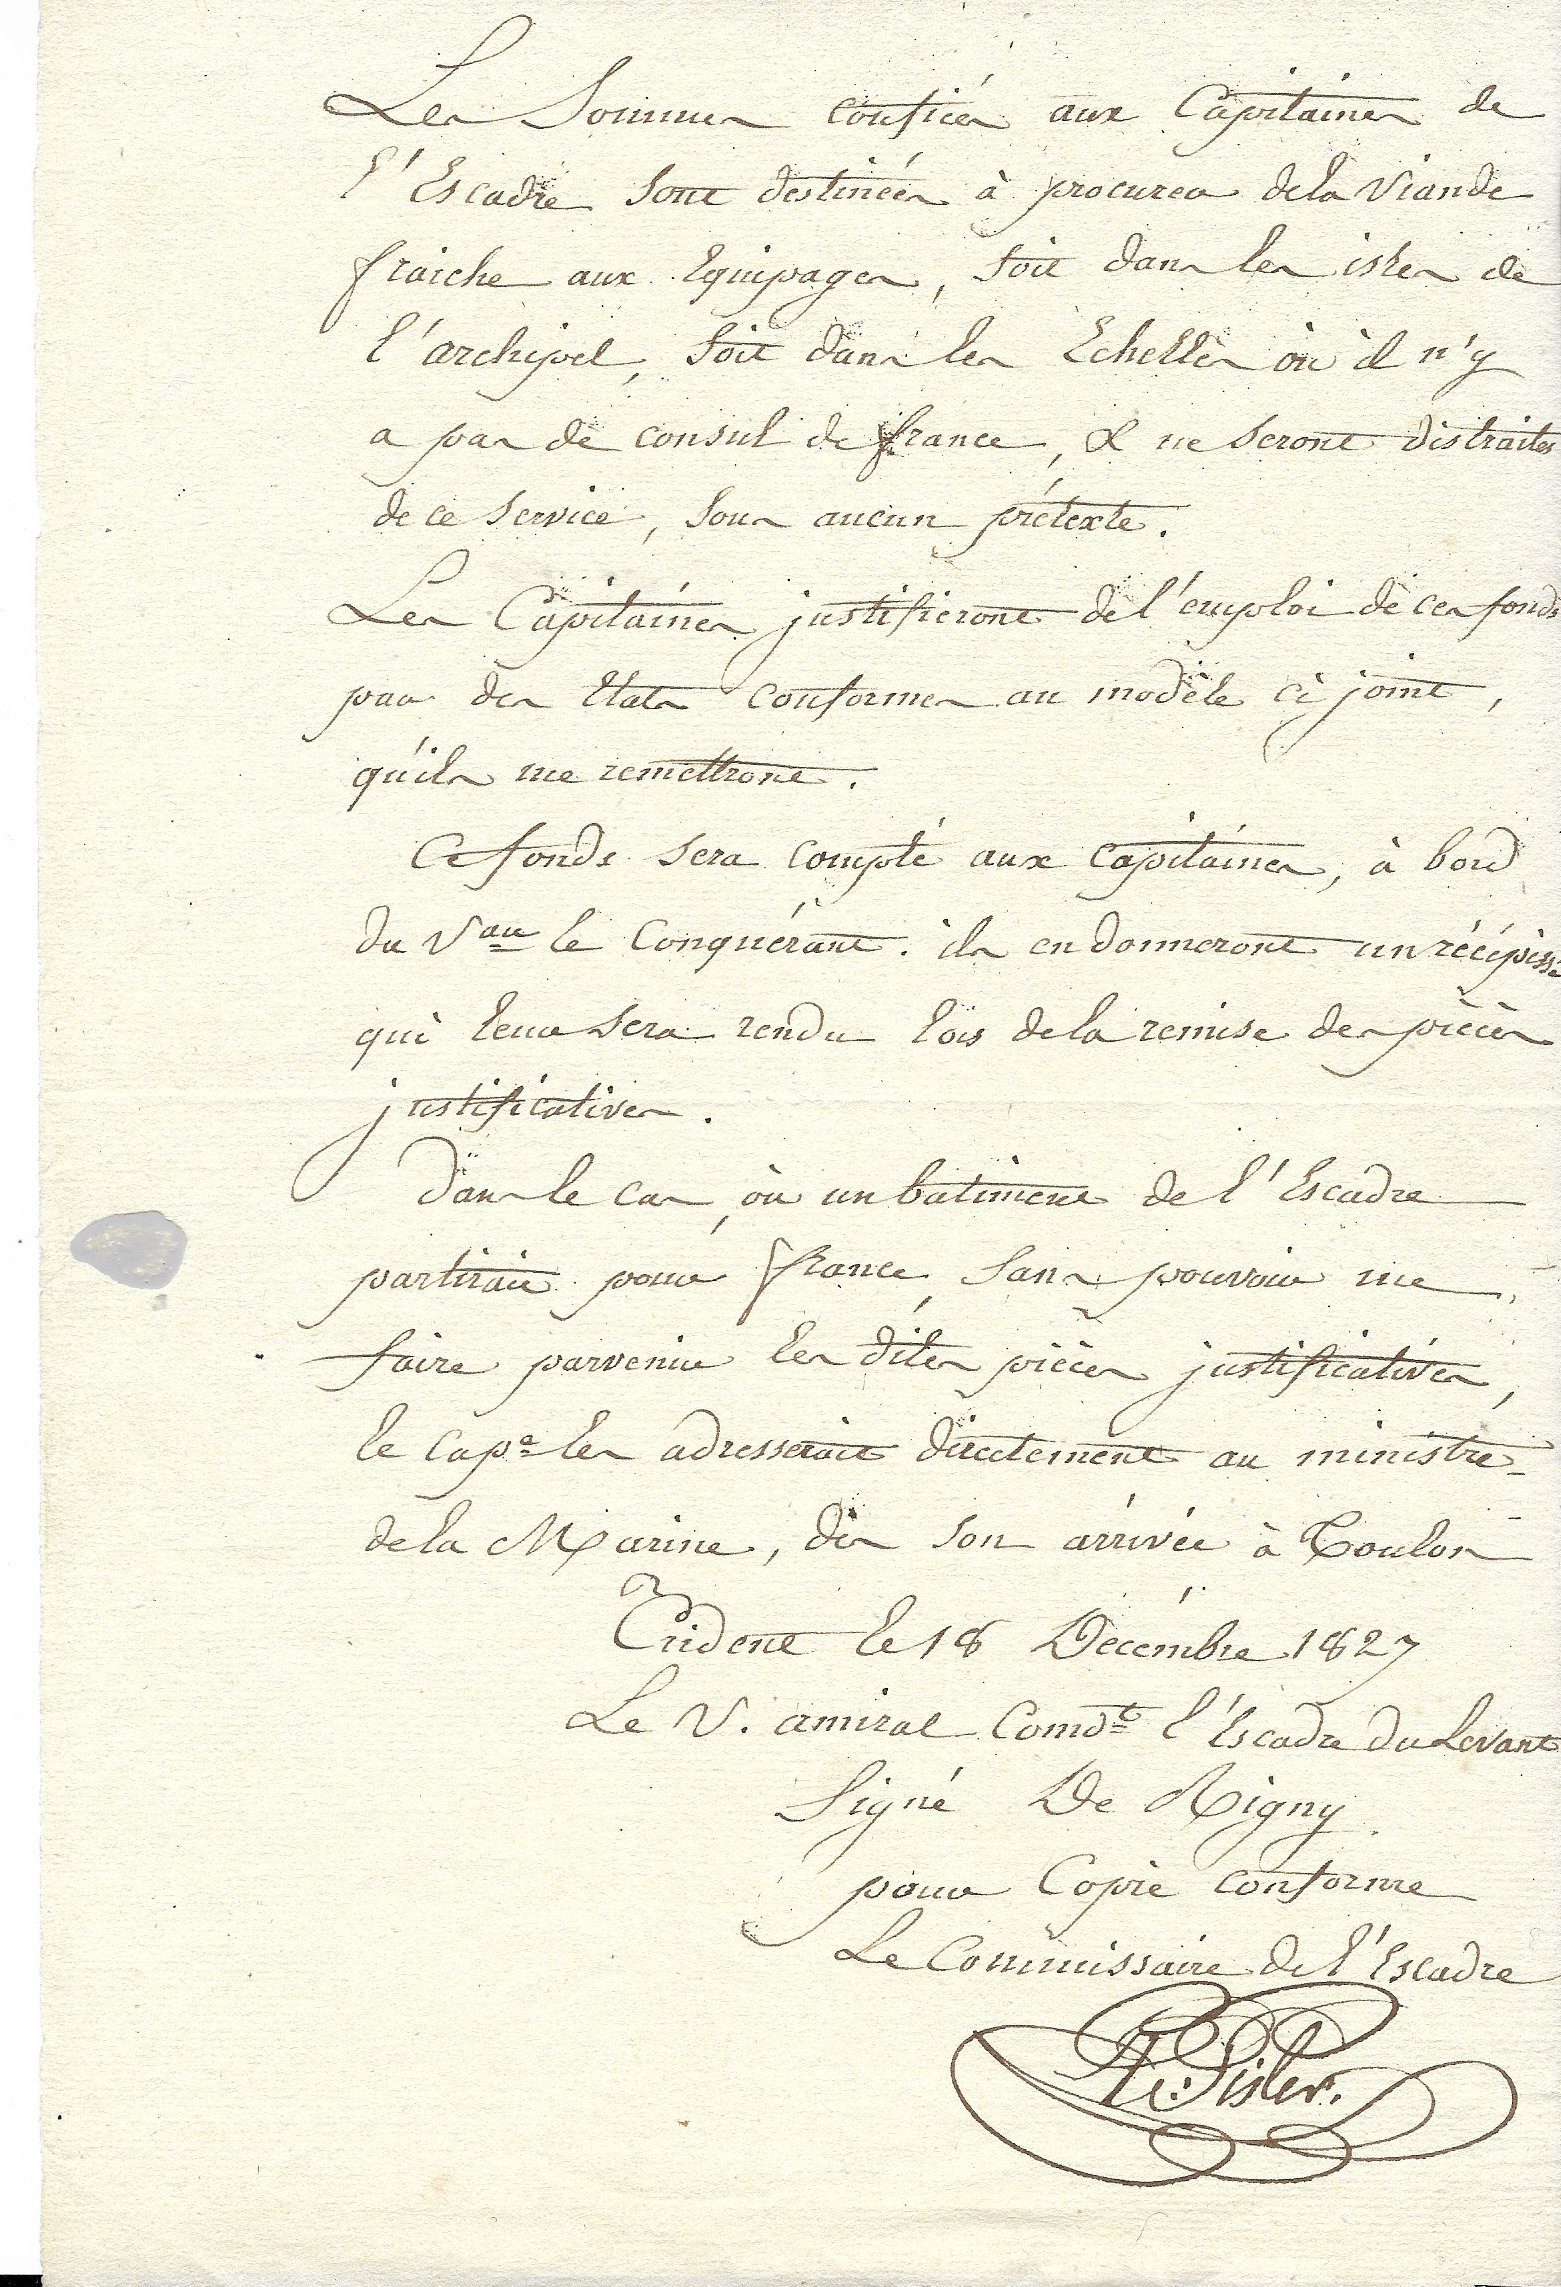 Les Sommes confiées aux Capitaines de
l'Escadre sont destinées à procurer de la Viande
fraiche aux Equipages, soit dans les isles de
l'archipel, soit dans les Echelles où il n'y
a pas de consul de france, & ne seront distraites
de ce service, sous aucun prétexte.
Les Capitaines justifieront de l'emploi de ces fonds
par des Etats conformes au modèle ci joint,
qu'ils me remettront.
Ce fonds sera compté aux capitaines, à bord
du Vau le Conquérant. ils en donneront un récépissé
qui leur sera rendu lors de la remise des pièces
justificatives.
Dans le cas, où un batiment de l'Escadre
partirait pour france, sans pouvoir me
faire parvenir les dites pièces justificatives,
le cape les adresserait directement au ministre
de la Marine, dès son arrivée à Toulon
Trident le 18 Décembre 1827
Le V. amiral Comdt l'Escadre du Levant
Signé De Rigny
pour Copie conforme
Le Commissaire de l'Escadre